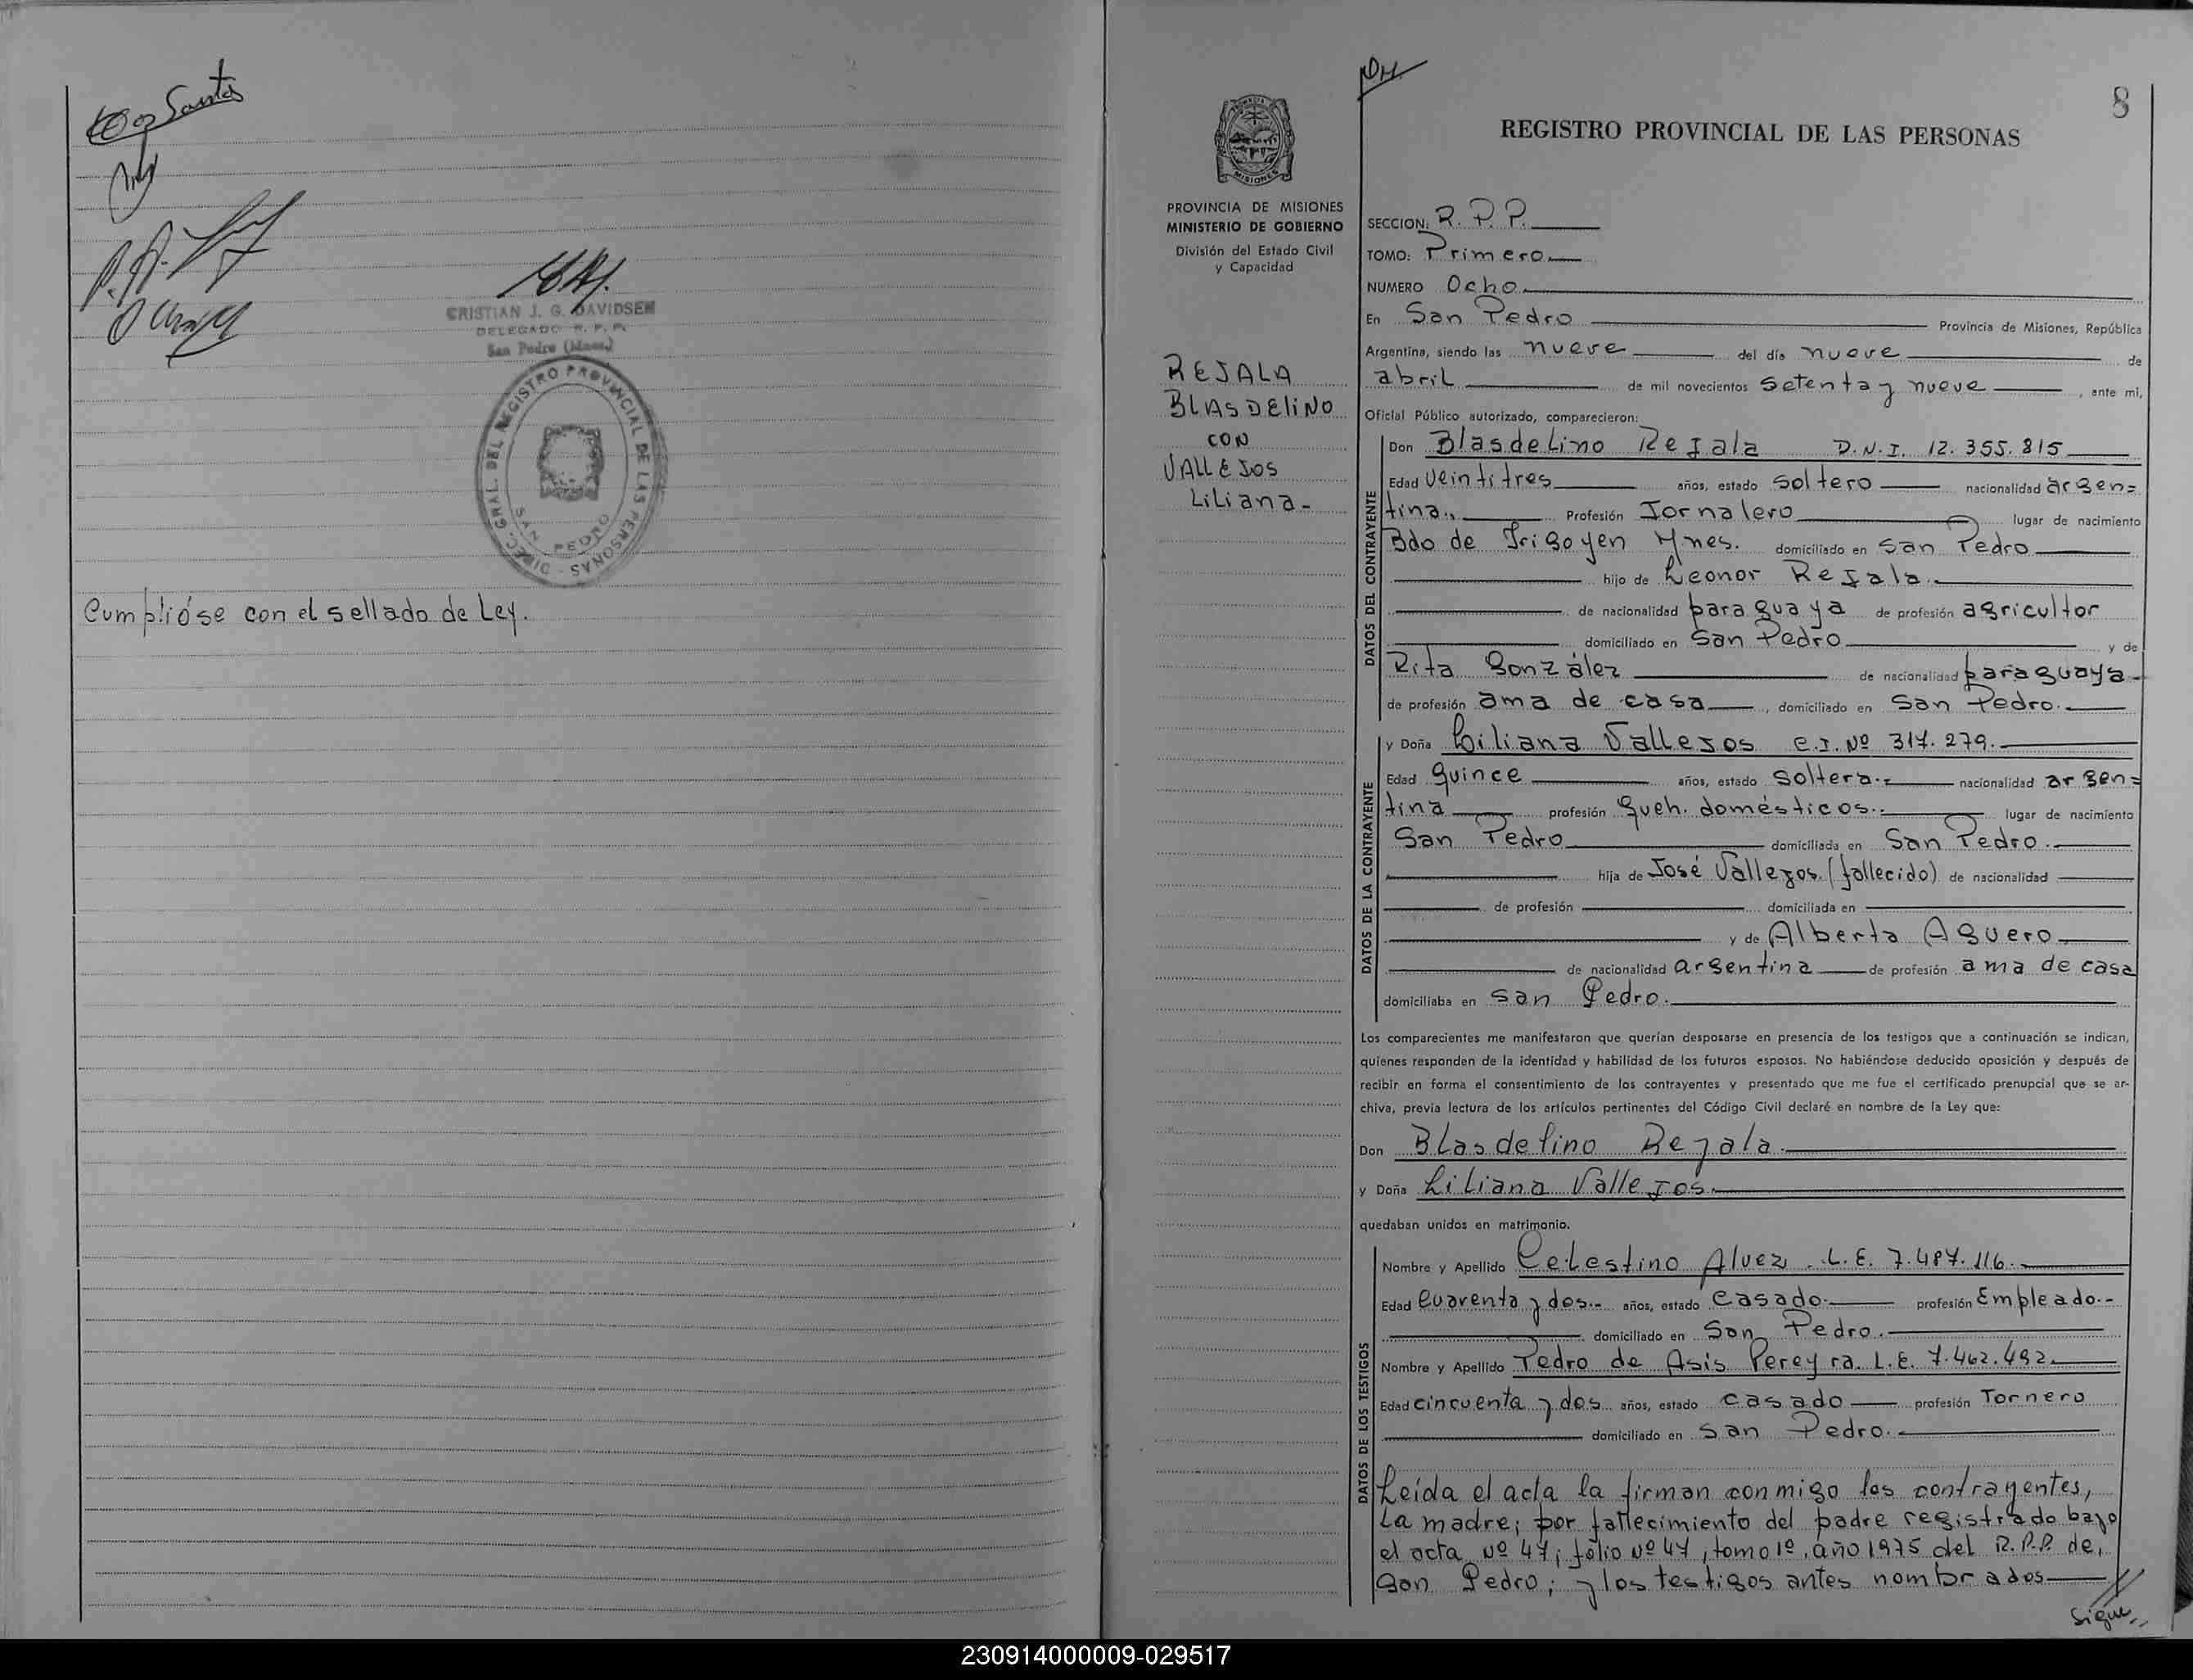 Santos
CRISTIAN J. G. DAVIDSEM
DELEGADO R. P. P.
San Pedro (Mnes.)
DIREC. GRAL. DEL REGISTRO PROVINCIAL DE LAS PERSONAS -
SAN PEDRO
Cumplióse con el sellado de Ley.
8
REGISTRO PROVINCIAL DE LAS PERSONAS
MISIONES
PROVINCIA DE MISIONES
MINISTERIO DE GOBIERNO
División del Estado Civil
y Capacidad
REJALA
BLASDELINO
CON
VALLEJOS
LILIANA-
SECCION: R. P. P.
TOMO: Primero
NUMERO Ocho
En San Pedro Provincia de Misiones, República
Argentina, siendo las nueve del día nueve de
abril de mil novecientos setenta y nueve, ante mi,
Oficial Público autorizado, comparecieron:
DATOS DEL CONTRAYENTE
Don Blasdelino Rejala D.N.I. 12.355.815
Edad veintitres años, estado soltero nacionalidad argen=
tina.. Profesión Jornalero lugar de nacimiento
Bdo de Irigoyen Mnes. domiciliado en San Pedro
hijo de Leonor Rejala.
de nacionalidad paraguaya de profesión agricultor
domiciliado en San Pedro y de
Rita González de nacionalidad paraguaya-
de profesión ama de casa, domiciliado en San Pedro.
DATOS DE LA CONTRAYENTE
y Doña Liliana Vallejos C.I. Nº 317.279.
Edad quince años, estado soltera.- nacionalidad argen=
tina profesión queh. domésticos.- lugar de nacimiento
San Pedro domiciliada en San Pedro.
hija de José Vallejos (fallecido) de nacionalidad
de profesión domiciliada en
y de Alberta Aguero
de nacionalidad argentina de profesión ama de casa
domiciliaba en San Pedro.
Los comparecientes me manifestaron que querían desposarse en presencia de los testigos que a continuación se indican,
quienes responden de la identidad y habilidad de los futuros esposos. No habiéndose deducido oposición y después de
recibir en forma el consentimiento de los contrayentes y presentado que me fue el certificado prenupcial que se ar-
chiva, previa lectura de los artículos pertinentes del Código Civil declaré en nombre de la Ley que:
Don Blasdelino Rejala.
y Doña Liliana Vallejos.
quedaban unidos en matrimonio.
DATOS DE LOS TESTIGOS
Nombre y Apellido Celestino Alvez . L.E. 7.487.116.
Edad Cuarenta y dos.- años, estado Casado. profesión Empleado.-
domiciliado en San Pedro.
Nombre y Apellido Pedro de Asis Pereyra. L.E. 7.462.492.
Edad cincuenta y dos años, estado casado profesión Tornero
domiciliado en San Pedro.
Leída el acta la firman conmigo los contrayentes,
La madre; por fallecimiento del padre registrado bajo
el acta Nº 47; folio Nº 47, tomo 1º, año 1975 del R.P.P. de,
San Pedro; y los testigos antes nombrados
Sigue
230914000009-029517